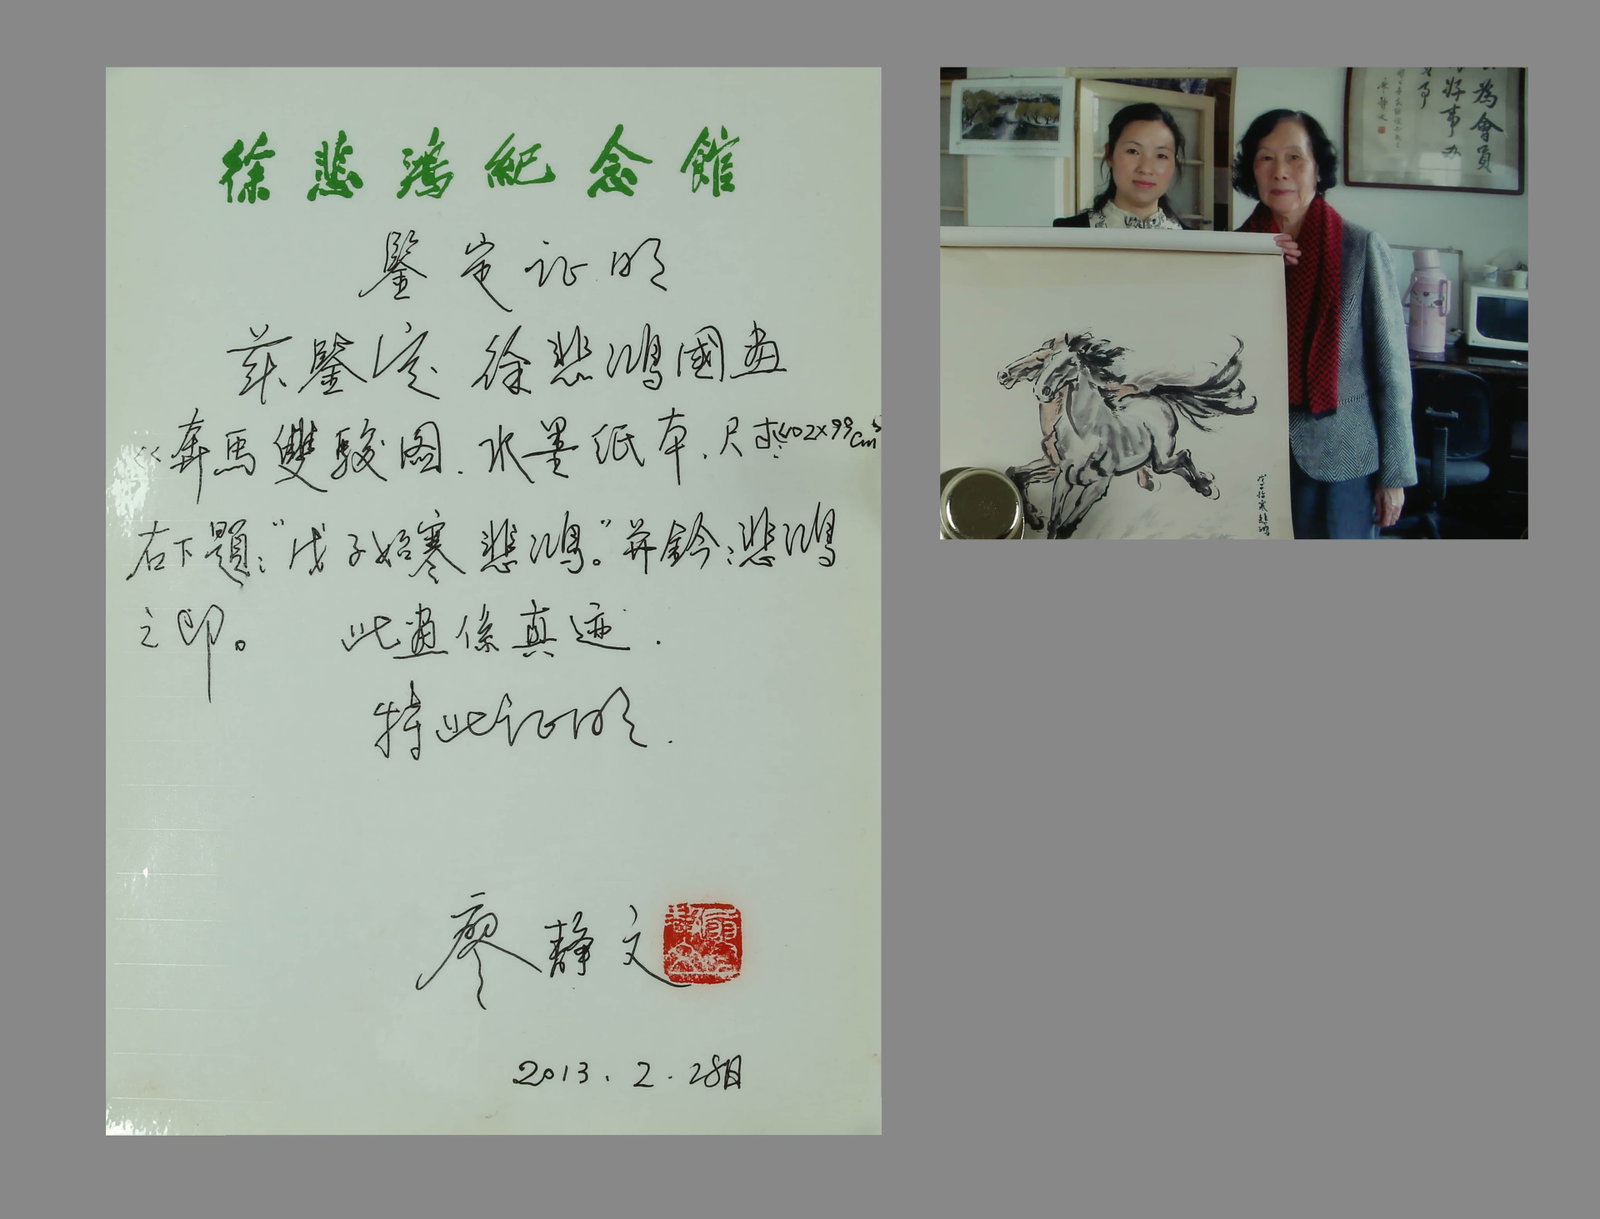 徐悲鴻紀念館
鑒定证明
兹鑒定徐悲鴻國畫
《奔馬雙駿图.水墨纸本.尺寸:102×99cm
右下題:"戊子始寒悲鴻。"并鈐:悲鴻
之印。 此畫係真迹.
特此证明.
廖静文
2013.2.28日
為會員
好事办
戊子始寒悲鴻